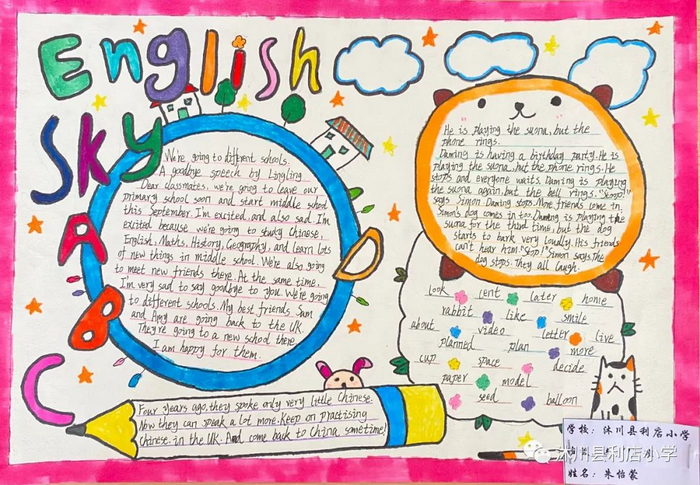 English
Sky
A
B
C
D
We're going to different schools.
A goodbye speech by Lingling
Dear classmates, we're going to leave our
primary school soon and start middle school
this September. I'm excited and also sad. I'm
excited because we're going to study Chinese,
English, Maths, History, Geography, and learn lots
of new things in middle school. We're also going
to meet new friends there. At the same time,
I'm very sad to say goodbye to you. We're going
to different schools. My best friends Sam
and Amy are going back to the UK.
They're going to a new school there.
I am happy for them.
Four years ago, they spoke only very little Chinese.
Now they can speak a lot more. Keep on practising
Chinese in the UK. And come back to China sometime!
He is playing the suona, but the
phone rings.
Daming is having a birthday party. He is
playing the suona, but the phone rings. He
stops and everyone waits. Daming is playing
the suona again, but the bell rings. "Stop!"
says Simon. Daming stops. More friends come in.
Simon's dog comes in too. Daming is playing the
suona for the third time, but the dog
starts to bark very loudly. His friends
can't hear him. "Stop!" Simon says. The
dog stops. They all laugh.
look cent later home
rabbit like smile
about video letter live
planned plan more
cup space decide
paper model
seed balloon
学校：沐川县利店小学
姓名：朱怡蒙
沐川县利店小学